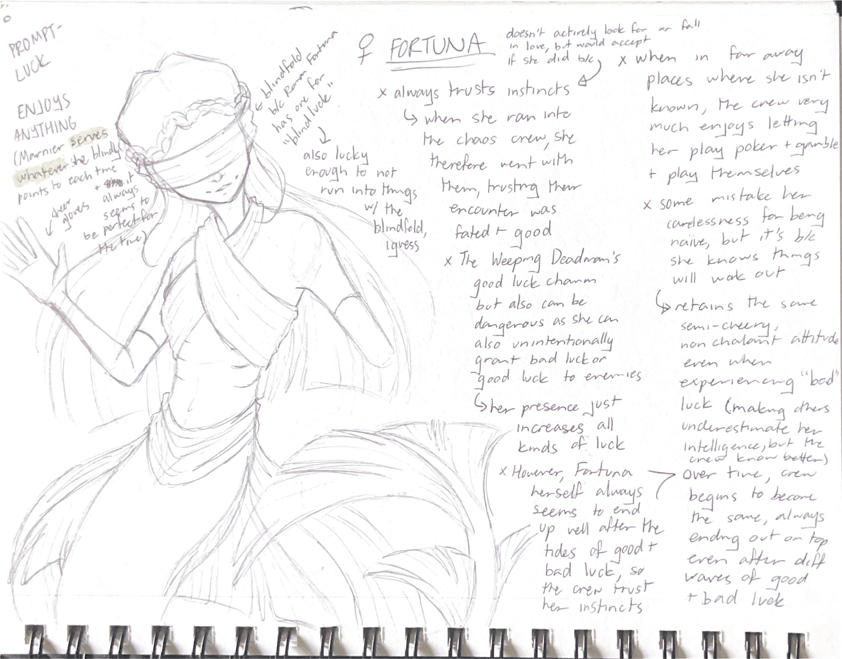 PROMPT-
LUCK
ENJOYS
ANYTHING
(Marnier serves
whatever she blindly
points to each time
+ it
always
seems to
be perfect for
the time)
her
gloves
blindfold
b/c Roman Fortuna
has one for
"blind luck"
also lucky
enough to not
run into things
w/ the
blindfold,
igress
♀ FORTUNA
doesn't actively look for or fall
in love, but would accept
if she did b/c
x always trusts instincts
↳ when she ran into
the chaos crew, she
therefore went with
them, trusting their
encounter was
fated + good
x The Weeping Deadman's
good luck charm
but also can be
dangerous as she can
also unintentionally
grant bad luck or
good luck to enemies
↳ her presence just
increases all
kinds of luck
x However, Fortuna
herself always
seems to end
up well after the
tides of good +
bad luck, so
the crew trust
her instincts
x when in far away
places where she isn't
known, the crew very
much enjoys letting
her play poker + gamble
+ play themselves
x some mistake her
carelessness for being
naive, but it's b/c
she knows things
will wok out
↳ retains the same
semi-cheery,
nonchalant attitude
even when
experiencing "bad"
luck (making others
underestimate her
intelligence, but the
crew know better)
over time, crew
begins to become
the same, always
ending out on top
even after diff
waves of good
+ bad luck